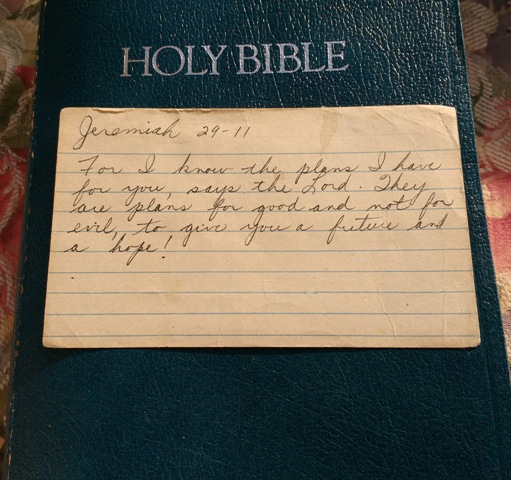 HOLY BIBLE
Jeremiah 29-11
For I know the plans I have
for you, says the Lord. They
are plans for good and not for
evil, to give you a future and
a hope!